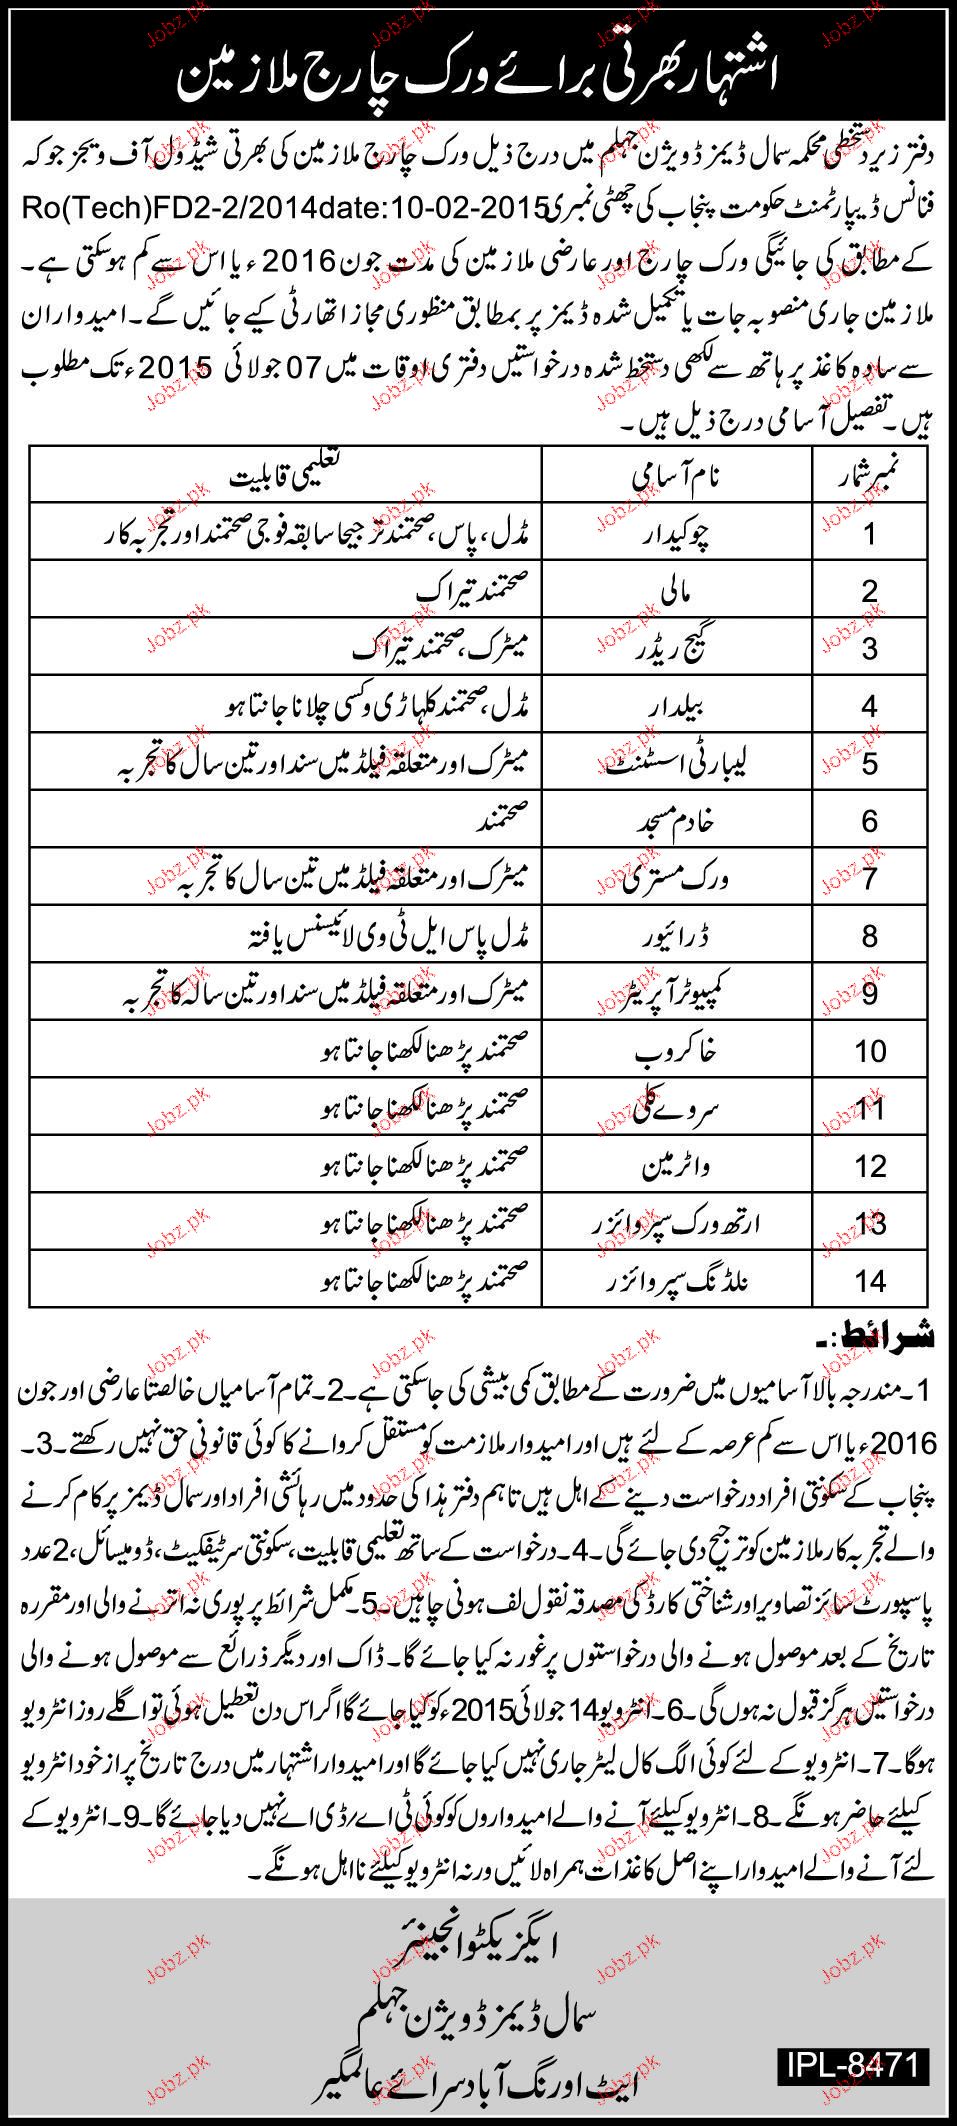 اشتہار بھرتی برائے ورک چارج ملازمین
دفتر زیر دستخطی محکمہ سمال ڈیمز ڈویژن جہلم میں درج ذیل ورک چارج ملازمین کی بھرتی شیڈول آف ویجز جو کہ
فنانس ڈیپارٹمنٹ حکومت پنجاب کی چھٹی نمبری Ro(Tech)FD2-2/2014date:10-02-2015
کے مطابق کی جائیگی ورک چارج اور عارضی ملازمین کی مدت جون 2016ء یا اس سے کم ہوسکتی ہے۔
ملازمین جاری منصوبہ جات یا تکمیل شدہ ڈیمز پر بمطابق منظوری مجاز اتھارٹی کیے جائیں گے۔ امیدواران
سے سادہ کاغذ پر ہاتھ سے لکھی دستخط شدہ درخواستیں دفتری اوقات میں 07 جولائی 2015ء تک مطلوب
ہیں۔ تفصیل آسامی درج ذیل ہیں۔
نمبر شمار نام آسامی تعلیمی قابلیت
1 چوکیدار مڈل، پاس، صحتمند ترجیحا سابقہ فوجی صحتمند اور تجربہ کار
2 مالی صحتمند تیراک
3 گیج ریڈر میٹرک، صحتمند تیراک
4 بیلدار مڈل، صحتمند کلہاڑی و کسی چلانا جانتا ہو
5 لیبارٹی اسسٹنٹ میٹرک اور متعلقہ فیلڈ میں سند اور تین سال کا تجربہ
6 خادم مسجد صحتمند
7 ورک مستری میٹرک اور متعلقہ فیلڈ میں تین سال کا تجربہ
8 ڈرائیور مڈل پاس ایل ٹی وی لائیسنس یافتہ
9 کمپیوٹر آپریٹر میٹرک اور متعلقہ فیلڈ میں سند اور تین سالہ کا تجربہ
10 خاکروب صحتمند پڑھنا لکھنا جانتا ہو
11 سروے کلی صحتمند پڑھنا لکھنا جانتا ہو
12 واٹر مین صحتمند پڑھنا لکھنا جانتا ہو
13 ارتھ ورک سپروائزر صحتمند پڑھنا لکھنا جانتا ہو
14 نلڈنگ سپروائزر صحتمند پڑھنا لکھنا جانتا ہو
شرائط:۔
1۔ مندرجہ بالا آسامیوں میں ضرورت کے مطابق کمی بیشی کی جاسکتی ہے۔ 2۔ تمام آسامیاں خالصتاً عارضی اور جون
2016ء یا اس سے کم عرصہ کے لئے ہیں اور امیدوار ملازمت کو مستقل کروانے کا کوئی قانونی حق نہیں رکھتے۔ 3۔
پنجاب کے سکونتی افراد درخواست دینے کے اہل ہیں تاہم دفتر ہذا کی حدود میں رہائشی افراد اور سمال ڈیمز پر کام کرنے
والے تجربہ کار ملازمین کو ترجیح دی جائے گی۔ 4۔ درخواست کے ساتھ تعلیمی قابلیت، سکونتی سرٹیفکیٹ، ڈومیسائل، 2 عدد
پاسپورٹ سائز تصاویر اور شناختی کارڈ کی مصدقہ نقول لف ہونی چاہیں۔ 5۔ مکمل شرائط پر پوری نہ اترنے والی اور مقررہ
تاریخ کے بعد موصول ہونے والی درخواستوں پر غور نہ کیا جائے گا۔ ڈاک اور دیگر ذرائع سے موصول ہونے والی
درخواستیں ہرگز قبول نہ ہوں گی۔ 6۔ انٹرویو 14 جولائی 2015ء کو کیا جائے گا اگر اس دن تعطیل ہوئی تو اگلے روز انٹرویو
ہوگا۔ 7۔ انٹرویو کے لئے کوئی الگ کال لیٹر جاری نہیں کیا جائے گا اور امیدوار اشتہار میں درج تاریخ پر از خود انٹرویو
کیلئے حاضر ہونگے۔ 8۔ انٹرویو کیلئے آنے والے امیدواروں کو کوئی ٹی اے/ڈی اے نہیں دیا جائے گا۔ 9۔ انٹرویو کے
لئے آنے والے امیدوار اپنے اصل کاغذات ہمراہ لائیں ورنہ انٹرویو کیلئے نااہل ہونگے۔
ایگزیکٹو انجینئر
سمال ڈیمز ڈویژن جہلم
ایٹ اورنگ آباد سرائے عالمگیر
IPL-8471
Jobz.pk